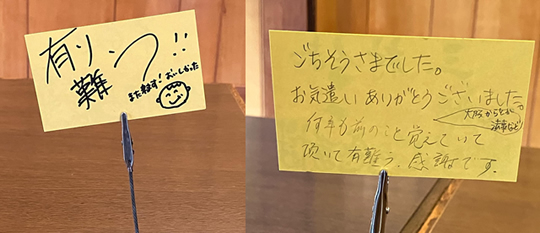 有り、っ!!
難
また来ます!おいしかった
ごちそうさまでした。
お気遣いありがとうございました。
大阪からとか
漬菜など
何年も前のこと覚えていて
頂いて有難う、感謝です。